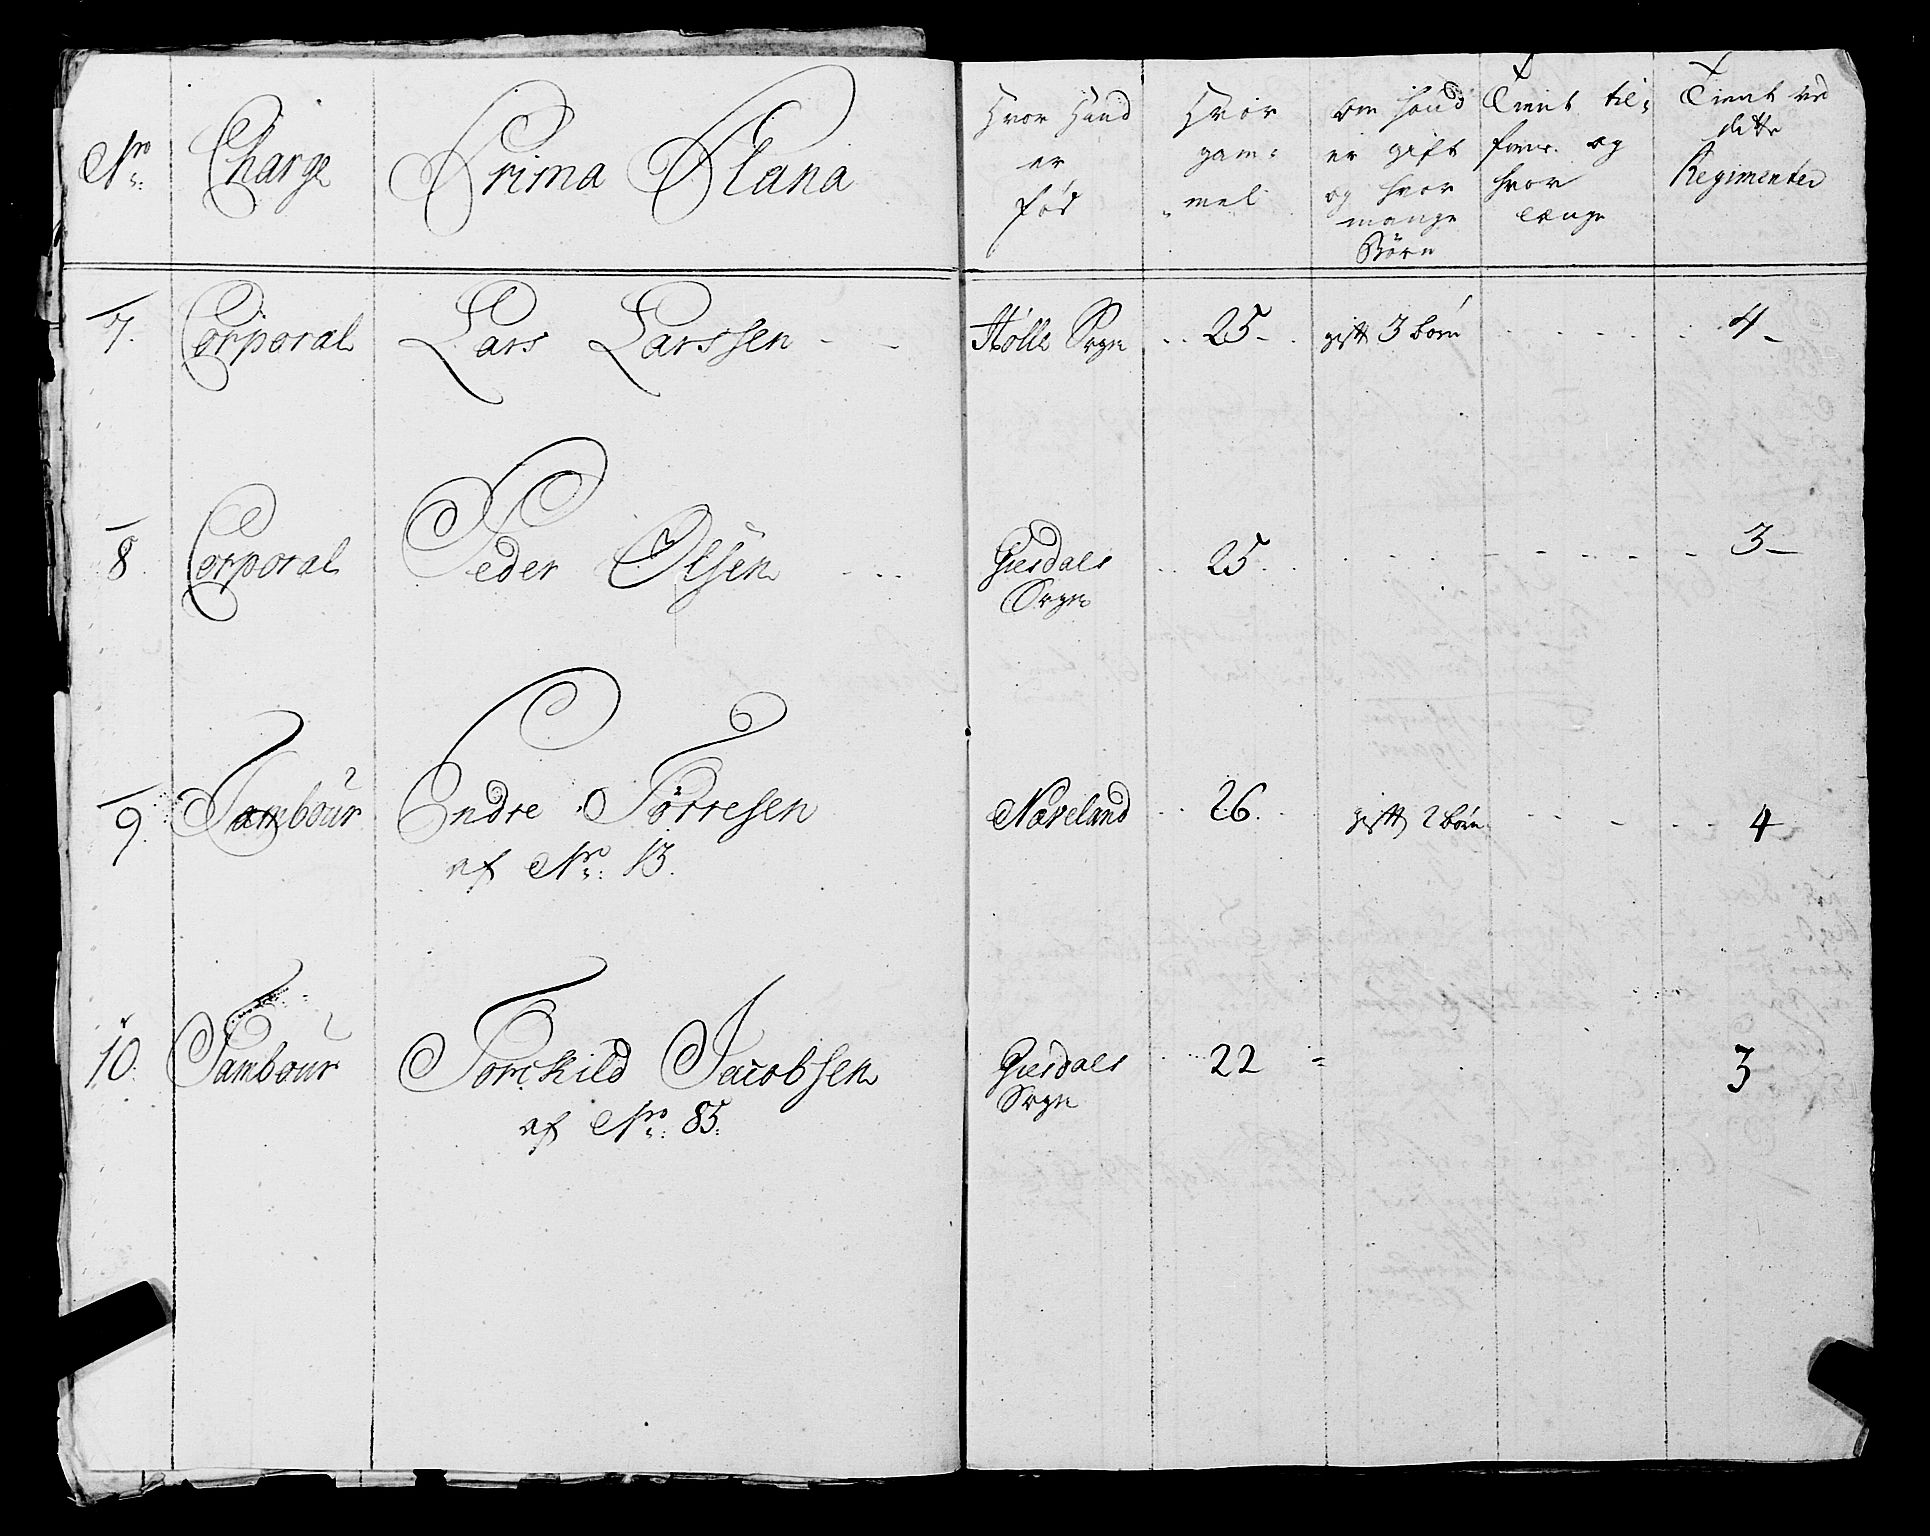 No: Charge Prima Plana Hvor Hand er fød Hvor gam= mel om hand er gift og hvor mange Börn Tient til= forn og hvor længe Tient ved dette Regimentet
7. Corporal Lars Larssen Hölle Sogn 25 gift 3 börn 4
8. Corporal Peder Olsen Giesdals Sogn 25 3
9. Tambour Endre Törresen Næveland 26 gift 2 börn 4
af No: 13.
10. Tambour Torckild Jacobsen Giesdals Sogn 22 3
af No: 85.